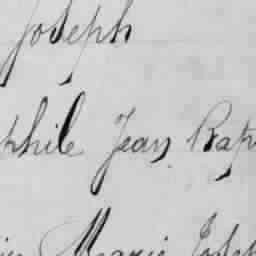 Joseph
phile Jean Bap
Marie Joseph